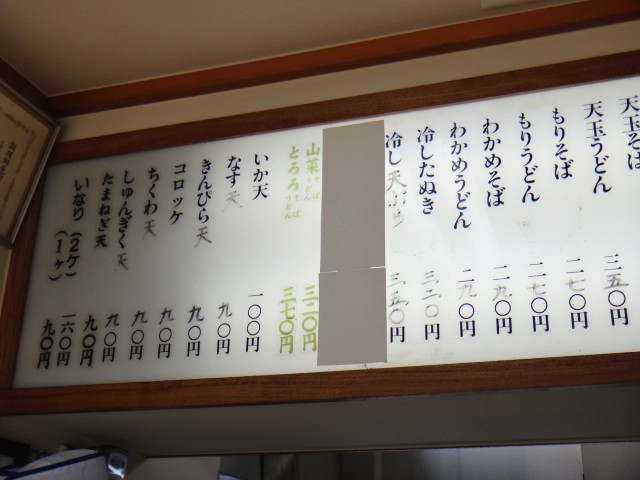 天玉そば 三五〇円
天玉うどん 二七〇円
もりそば 二七〇円
もりうどん 二九〇円
わかめそば 二九〇円
わかめうどん 三二〇円
冷したぬき 三五〇円
冷し天ぷら
山菜うどんそば 三二〇円
とろろうどんそば 三七〇円
いか天 一〇〇円
なす天 九〇円
きんぴら天 九〇円
コロッケ 九〇円
ちくわ天 九〇円
しゅんぎく天 九〇円
たまねぎ天 九〇円
いなり(2ケ) 一六〇円
(1ヶ) 九〇円